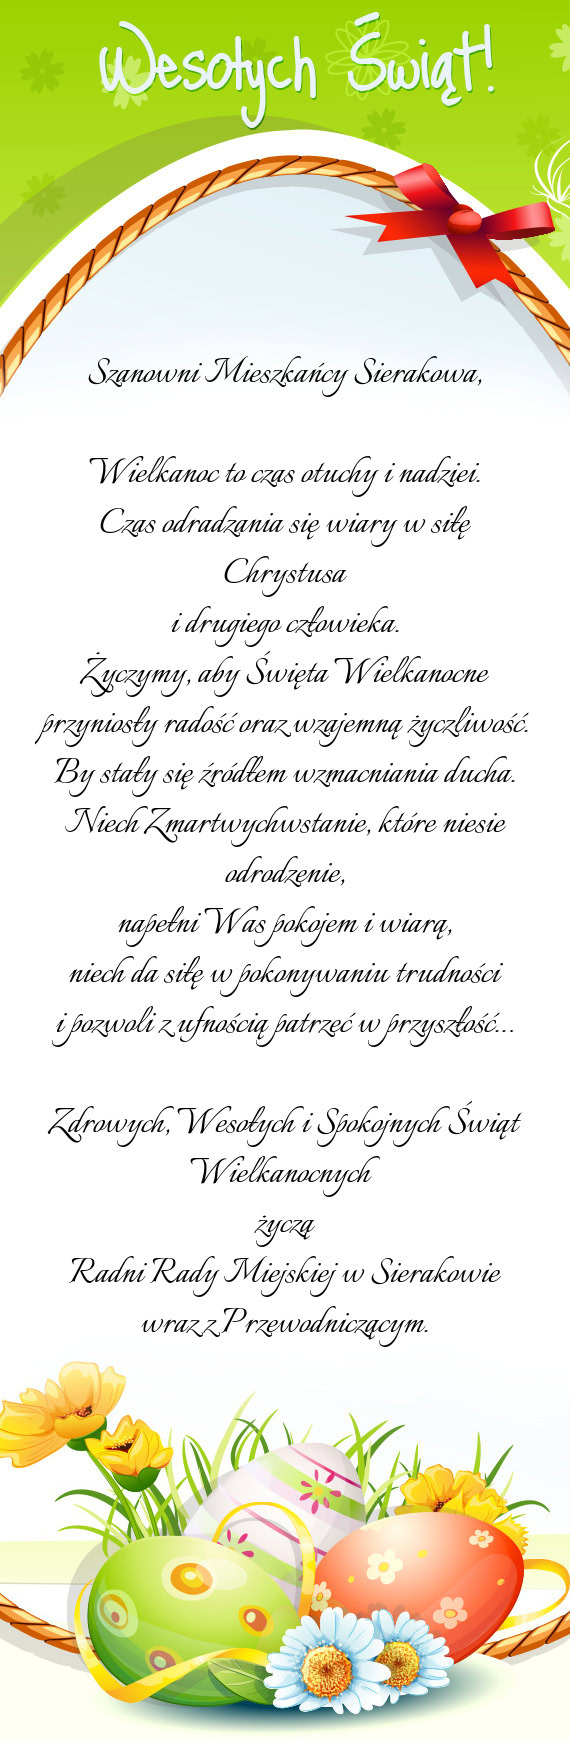 Wesołych Świąt!
Szanowni Mieszkańcy Sierakowa,
Wielkanoc to czas otuchy i nadziei.
Czas odradzania się wiary w siłę
Chrystusa
i drugiego człowieka.
Życzymy, aby Święta Wielkanocne
przyniosły radość oraz wzajemną życzliwość.
By stały się źródłem wzmacniania ducha.
Niech Zmartwychwstanie, które niesie
odrodzenie,
napełni Was pokojem i wiarą,
niech da siłę w pokonywaniu trudności
i pozwoli z ufnością patrzeć w przyszłość...
Zdrowych, Wesołych i Spokojnych Świąt
Wielkanocnych
życzą
Radni Rady Miejskiej w Sierakowie
wraz z Przewodniczącym.